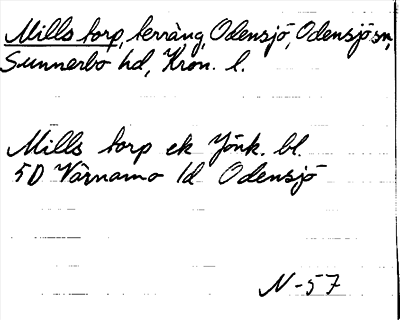 Mills torp, terräng, Odensjö, Odensjö sn,
Sunnerbo hd, Kron. l.
Mills torp ek Jönk. bl.
5D Värnamo 1d Odensjö
N-57